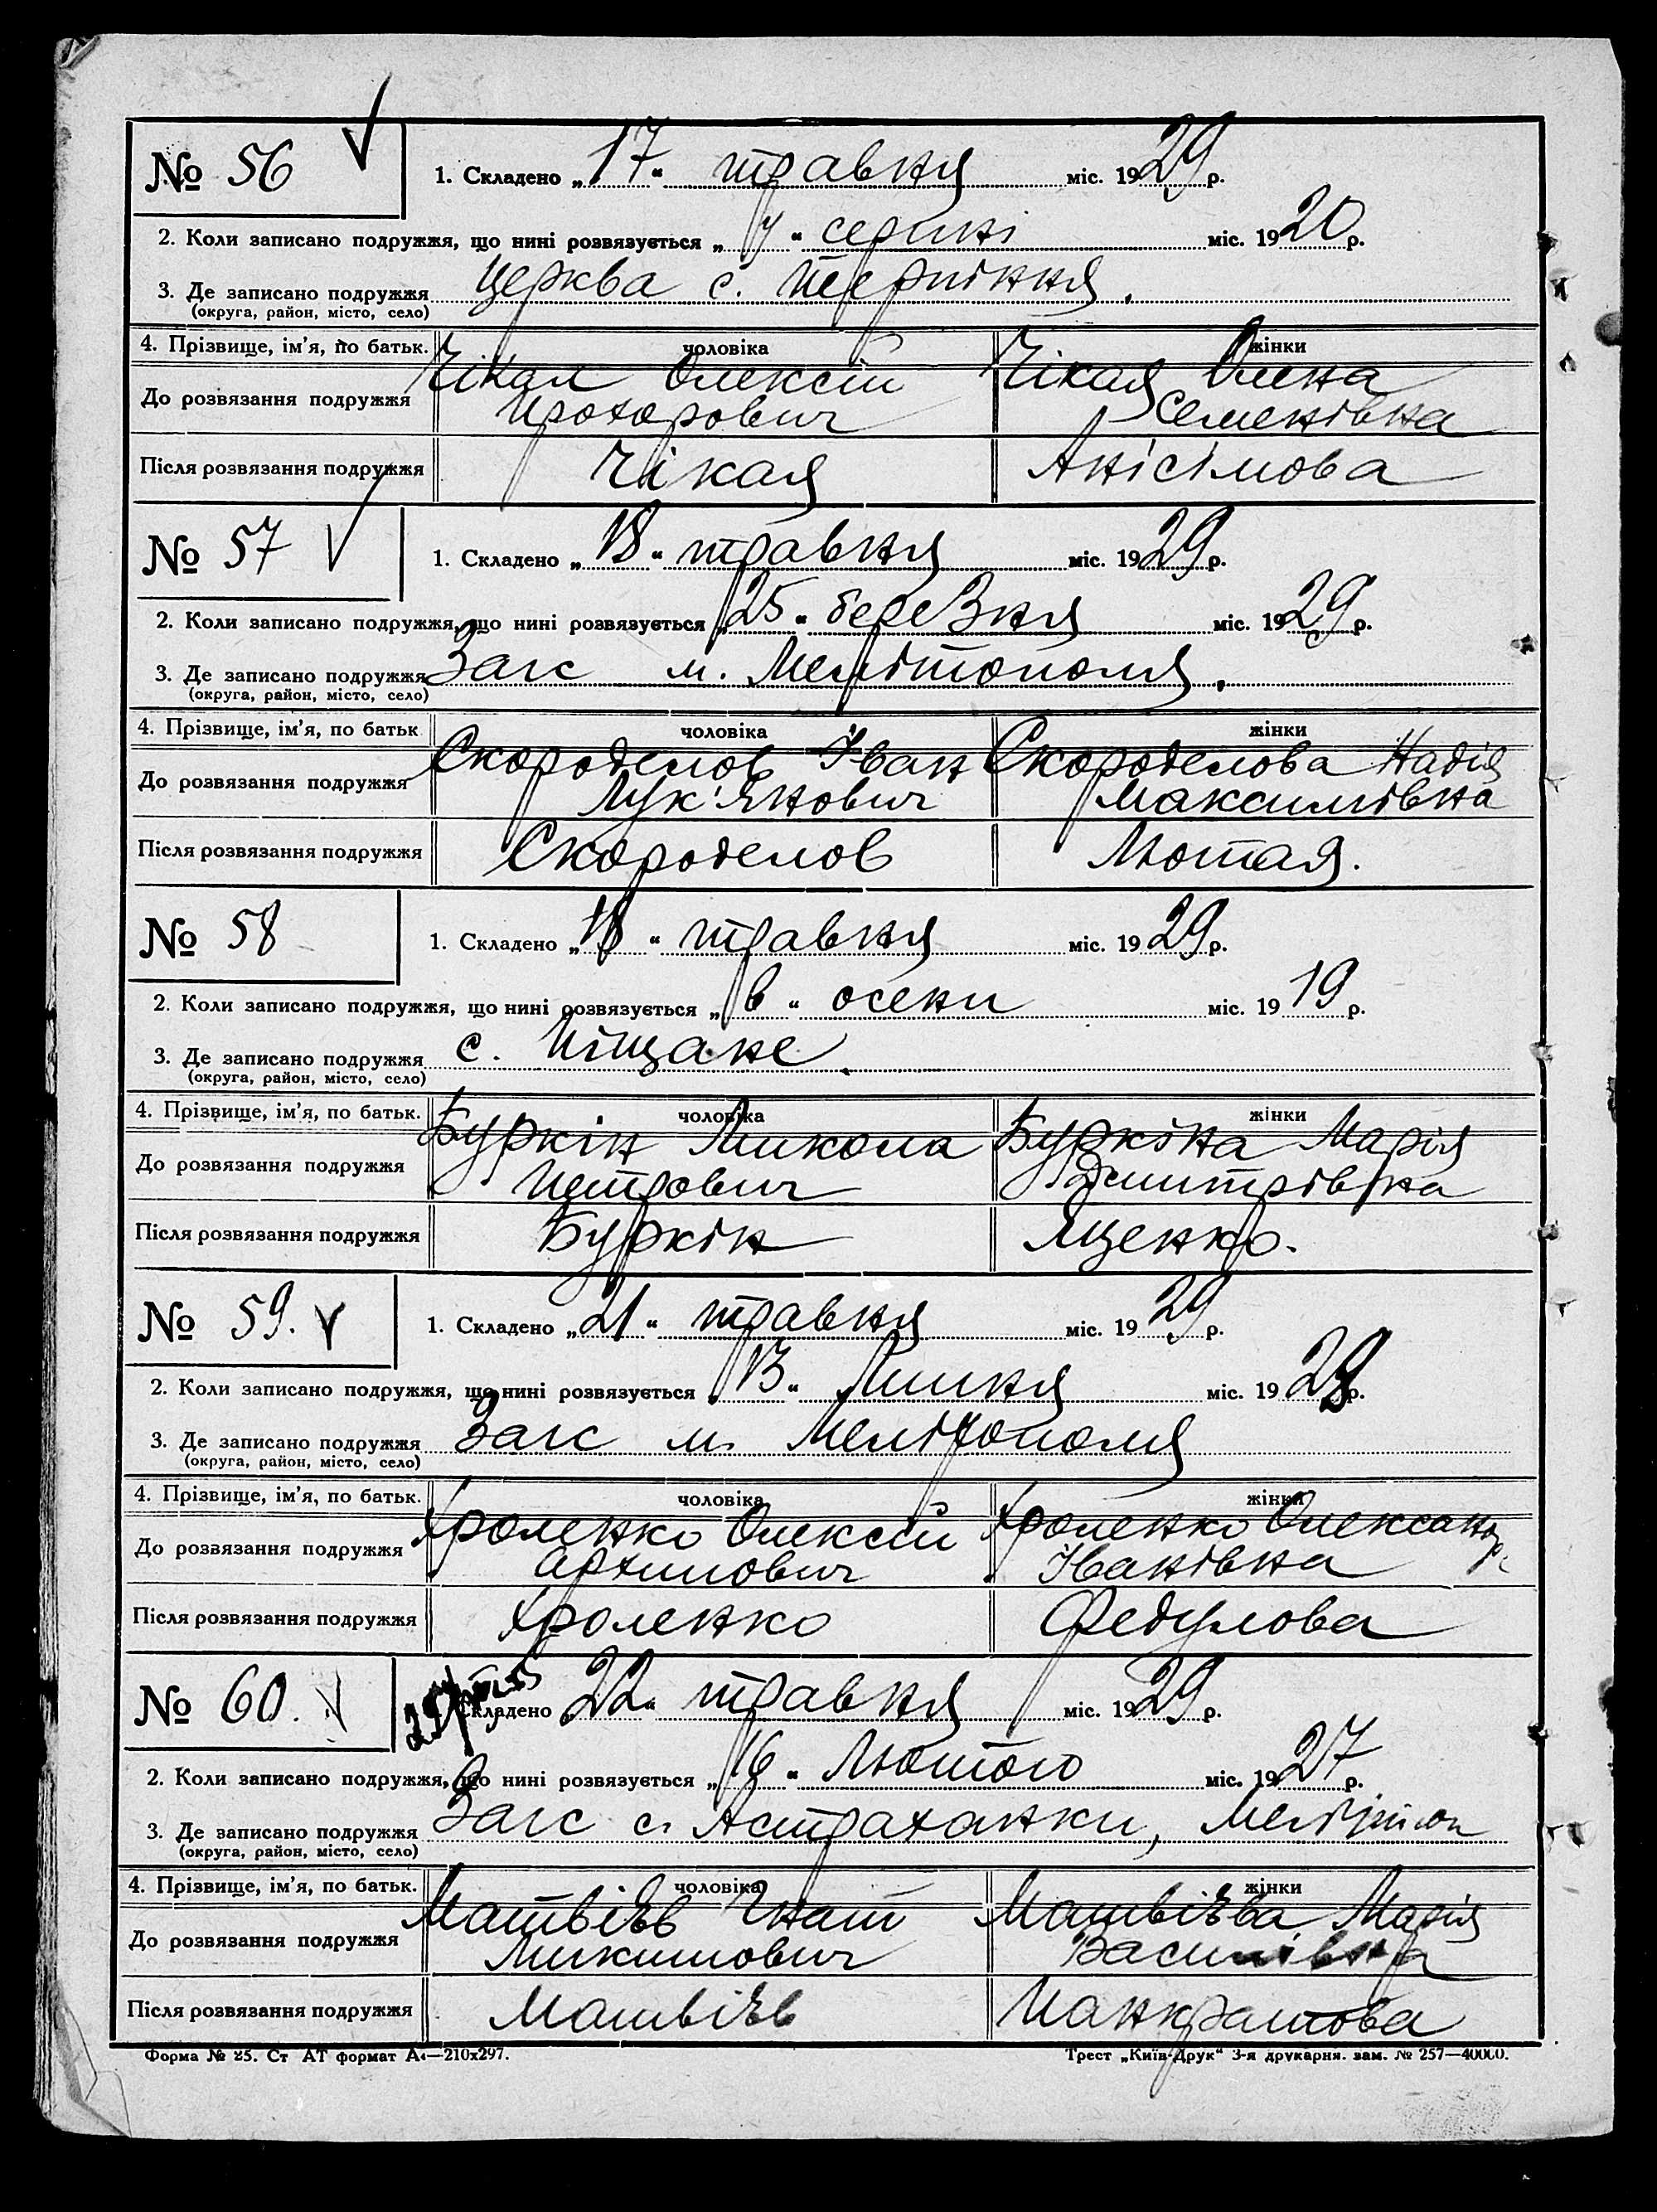 № 56
1. Складено „17“ травня міс. 1929 р.
2. Коли записано подружжя, що нині розвязується „у“ серпні міс. 1920 р.
3. Де записано подружжя Церква с. Терпіння.
(округа, район, місто, село)
4. Прізвище, ім'я, по батьк. чоловіка жінки
До розвязання подружжя Чікал Олексій Прохорович Чікая Олена Семенівна
Після розвязання подружжя Чікая Анісімова
№ 57
1. Складено „18“ травня міс. 1929 р.
2. Коли записано подружжя, що нині розвязується „25“ березня міс. 1929 р.
3. Де записано подружжя Загс м. Мелітополя.
(округа, район, місто, село)
4. Прізвище, ім'я, по батьк чоловіка жінки
До розвязання подружжя Скороделов Іван Лук'янович Скороделова Надія Максимівна
Після розвязання подружжя Скороделов Лютая.
№ 58
1. Складено „18“ травня міс. 1929 р.
2. Коли записано подружжя, що нині розвязується „в“ осени міс. 1919 р.
3. Де записано подружжя с. Піщане
(округа, район, місто, село)
4. Прізвище, ім'я, по батьк. чоловіка жінки
До розвязання подружжя Буркін Микола Петрович Буркіна Марія Дмитрівна
Після розвязання подружжя Буркін Яценко.
№ 59.
1. Складено „21“ травня міс. 1929 р.
2. Коли записано подружжя, що нині розвязується „13“ Липня міс. 1928 р.
3. Де записано подружжя Загс м. Мелітополя
(округа, район, місто, село)
4. Прізвище, ім'я, по батьк. чоловіка жінки
До розвязання подружжя Хроленко Олексій Архипович Хроленко Олександр. Іванівна
Після розвязання подружжя Хроленко Федулова
№ 60.
1. Складено „22“ травня міс. 1929 р.
2. Коли записано подружжя, що нині розвязується „16“ Лютого міс. 1927 р.
3. Де записано подружжя Загс с. Астраханки, Мелітоп
(округа, район, місто, село)
4. Прізвище, ім'я, по батьк. чоловіка жінки
До розвязання подружжя Матвієв Гнат Микитович Матвієва Марія Василівна
Після розвязання подружжя Матвієв Панкратова
Форма № 25. Ст АТ формат А4—210х297.
Трест „Київ-Друк“ 3-я друкарня. зам. № 257—40000.